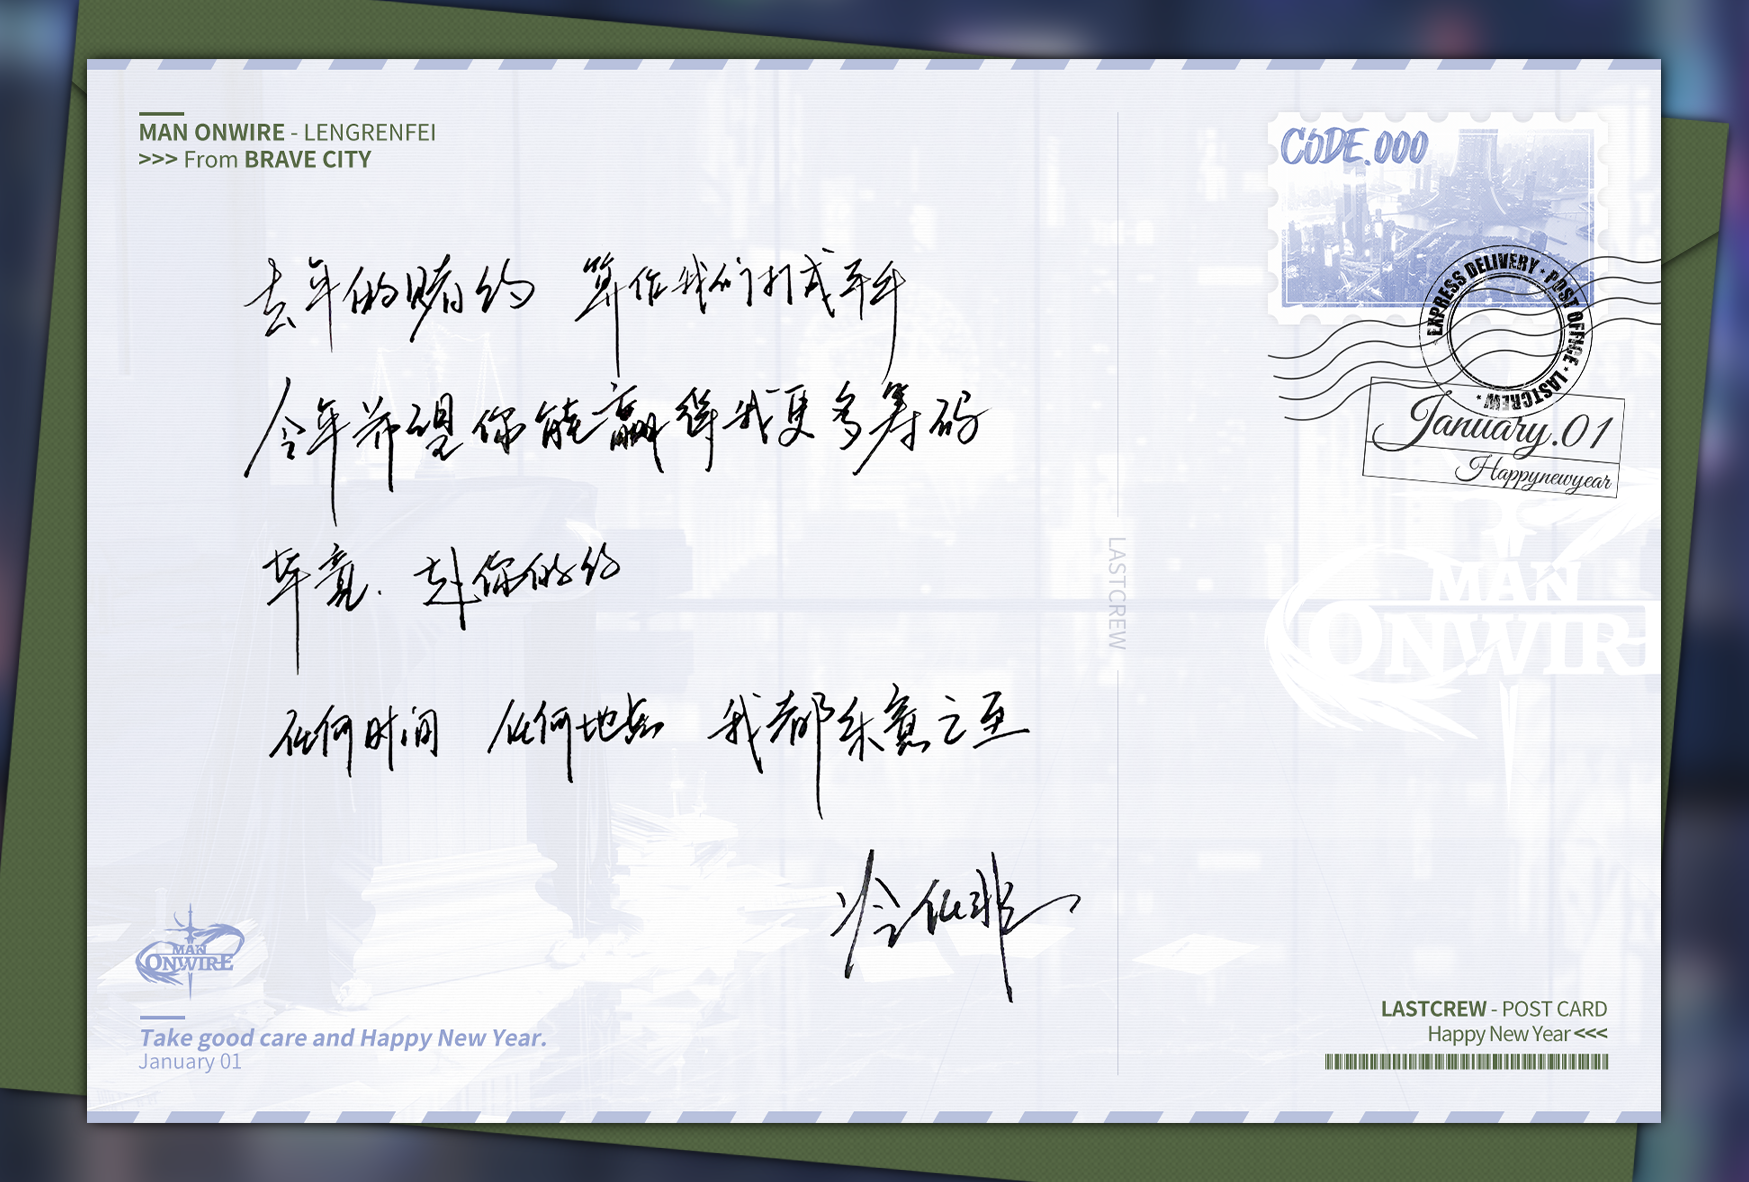 MAN ONWIRE - LENGRENFEI
>>> From BRAVE CITY
去年的赌约 算作我们打成平手
今年希望你能赢得我更多筹码
毕竟. 赴你的约
任何时间 任何地点 我都乐意之至
冷仞非
MAN
ONWIRE
Take good care and Happy New Year.
January 01
LASTCREW
CODE.000
EXPRESS DELIVERY · POST OFFICE · LASTCREW ·
January.01
Happynewyear
MAN
ONWIRE
LASTCREW - POST CARD
Happy New Year <<<